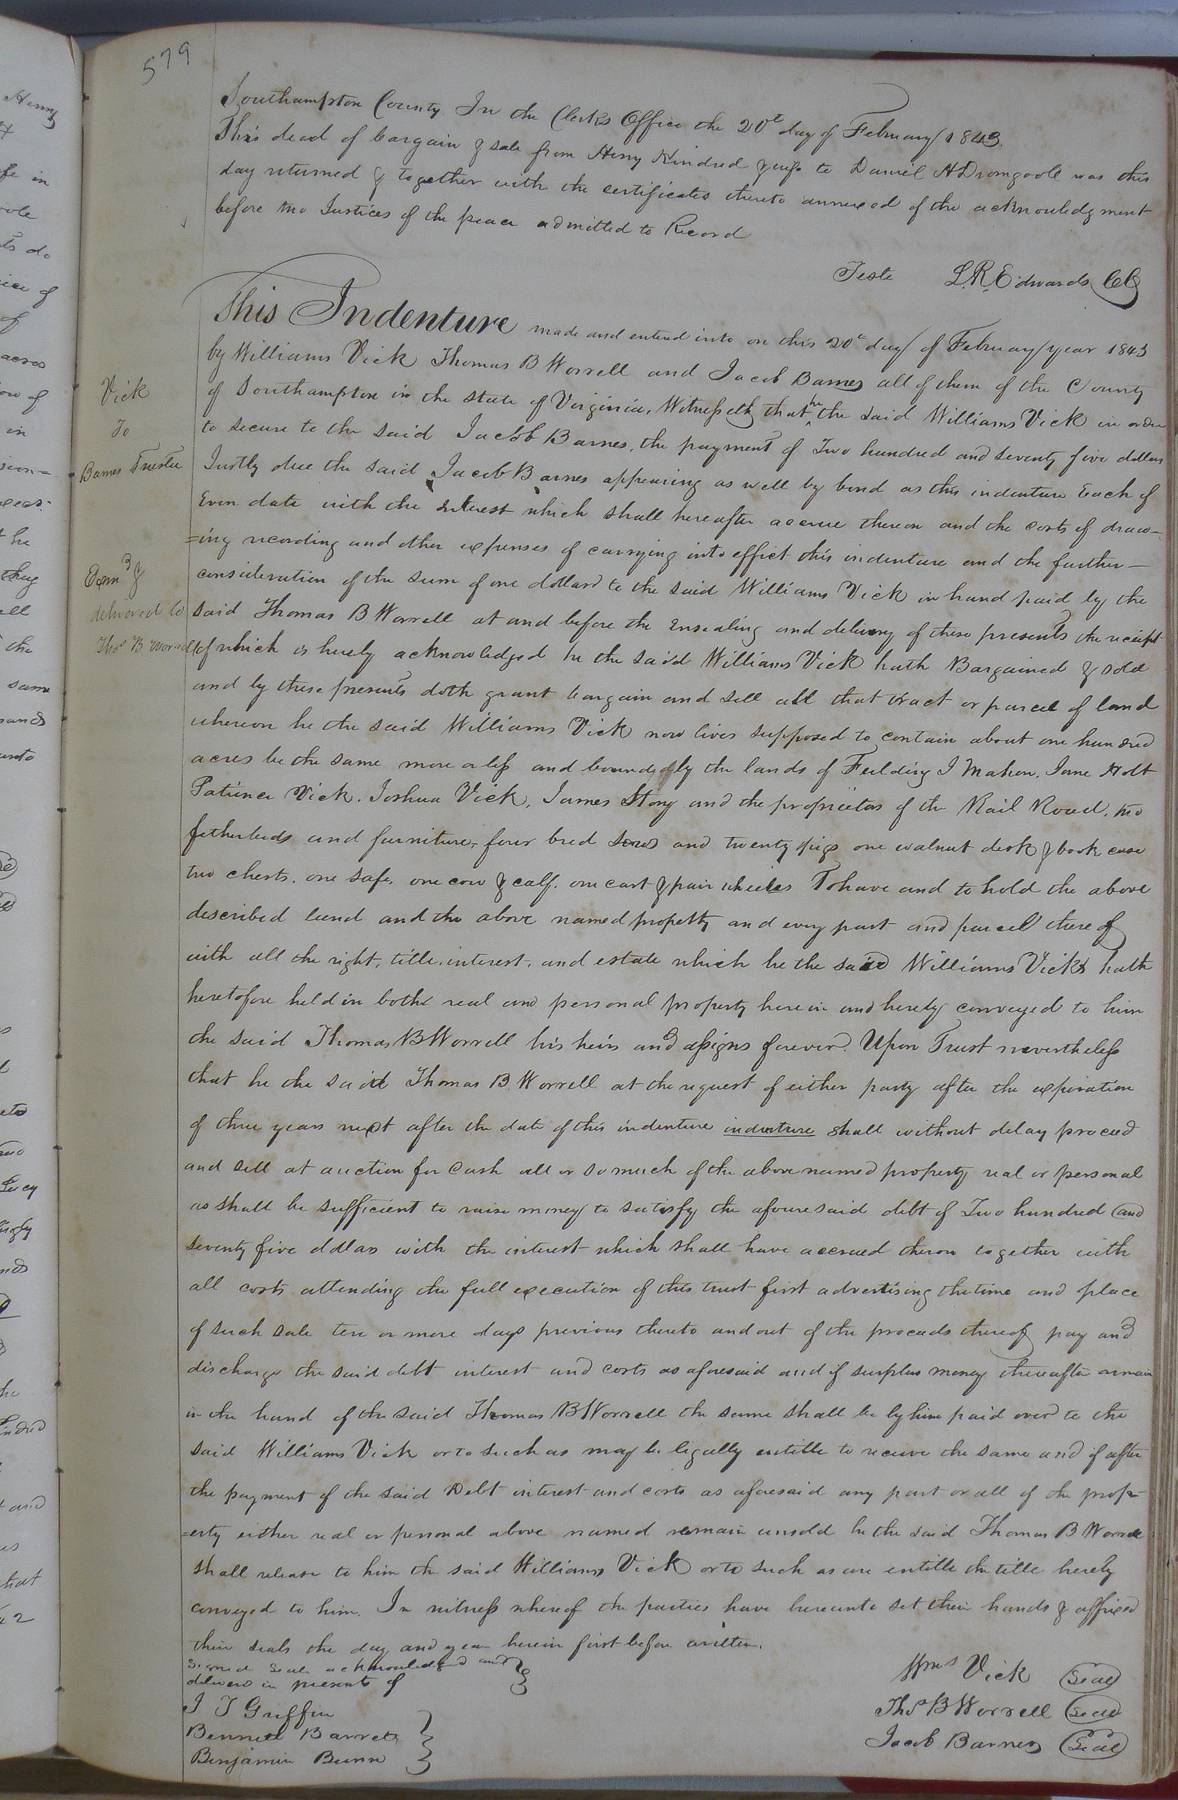 579
Southampton County In the Clerks Office the 20t day of February 1843.
This deed of bargain & sale from Henry Kindred & wife to Daniel H Dromgoole was this
day returned & together with the certificates thereto annexed of the acknowledgment
before two Justices of the peace admitted to Record
Teste L.R. Edwards CC
This Indenture made and entered into on this 20t day of February year 1843
by Williams Vick Thomas B Worrell and Jacob Barnes all of them of the County
of Southampton in the State of Virginia, Witnesseth that he the said Williams Vick in order
to secure to the said Jacob Barnes, the payment of Two hundred and seventy five dollars
Justly due the said Jacob Barnes appearing as well by bond as this indenture Each of
Even date with the interest which shall hereafter accrue thereon and the costs of draw-
=ing recording and other expenses of carrying into effect this indenture and the further
consideration of the sum of one dollard to the said Williams Vick in hand paid by the
said Thomas B Worrell at and before the Ensealing and delivery of these presents the receipt
of which is hereby acknowledged he the said Williams Vick hath Bargained & sold
and by these presents doth grant bargain and sell all that tract or parcel of land
whereon he the said Williams Vick now lives supposed to contain about one hundred
acres be the same more or less and bounded by the lands of Feilding J Mahon, Jane Holt
Patience Vick, Joshua Vick, James Story and the proprietors of the Rail Road, two
fetherbeds and furniture, four bred sows and twenty pigs one walnut desk & book case
two chests, one safe, one cow & calf, one cart & pair wheeles To have and to hold the above
described land and the above named property and every part and parcel there of
with all the right, title, interest, and estate which he the said Williams Vick hath
heretofore held in both real and personal property herein and hereby conveyed to him
the said Thomas B Worrell his heirs and assigns forever. Upon Trust nevertheless
that he the said Thomas B. Worrell at the request of either party after the expiration
of three years next after the date of this indenture indenture shall without delay proceed
and sell at auction for Cash all or so much of the above named property real or personal
as shall be sufficient to raise money to satisfy the aforesaid debt of Two hundred and
seventy five dollars with the interest which shall have accrued theron together with
all costs attending the full execution of this trust first advertising the time and place
of such sale ten or more days previous thereto and out of the proceeds thereof pay and
discharge the said debt interest and costs as aforesaid and if surplus money thereafter remain
in the hand of the said Thomas B Worrell the same shall be by him paid over to the
said Williams Vick or to such as may be legally entitle to receive the same and if after
the payment of the said Debt interest and costs as aforesaid any part or all of the prop-
=erty either real or personal above named remain unsold he the said Thomas B Worrell
shall release to him the said Williams Vick or to such as are entitle the title hereby
conveyed to him. In witness whereof the parties have hereunto set their hands & affixed
their seals the day and year herein first before written.
Signed Seal acknowledged and
deliverd in presents of
J T Griffin
Bennett Barrett
Benjamin Bunn
Wms Vick Seal
Thos B Worrell Seal
Jacob Barnes Seal
Vick
To
Barnes Trustee
Exmd &
delivered to
Thos B Worrell